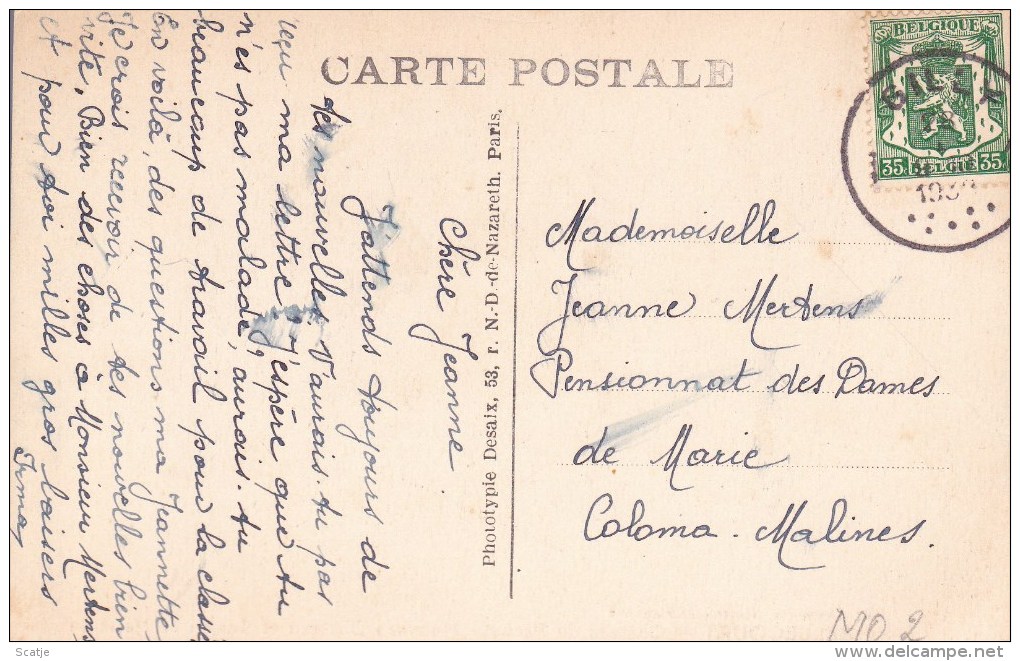 CARTE POSTALE
BELGIQUE
35
35
BELGIË
GILLY
193
Chère Jeanne
J'attends toujours de
tes nouvelles. N'aurais-tu pas
reçu ma lettre, j'espère que tu
n'es pas malade, aurais-tu
beaucoup de travail pour la classe
En voilà, des questions. ma Jeannette,
Je crois recevoir de tes nouvelles bien
vite, Bien des choses à Monsieur Mertens
et pour toi milles gros baisers
Irma
Phototypie Desaix, 53, r. N.-D.-de-Nazareth. Paris.
Mademoiselle
Jeanne Mertens
Pensionnat des Dames
de Marie
Coloma. Malines.
MO 2
Scatje
www.delcampe.net